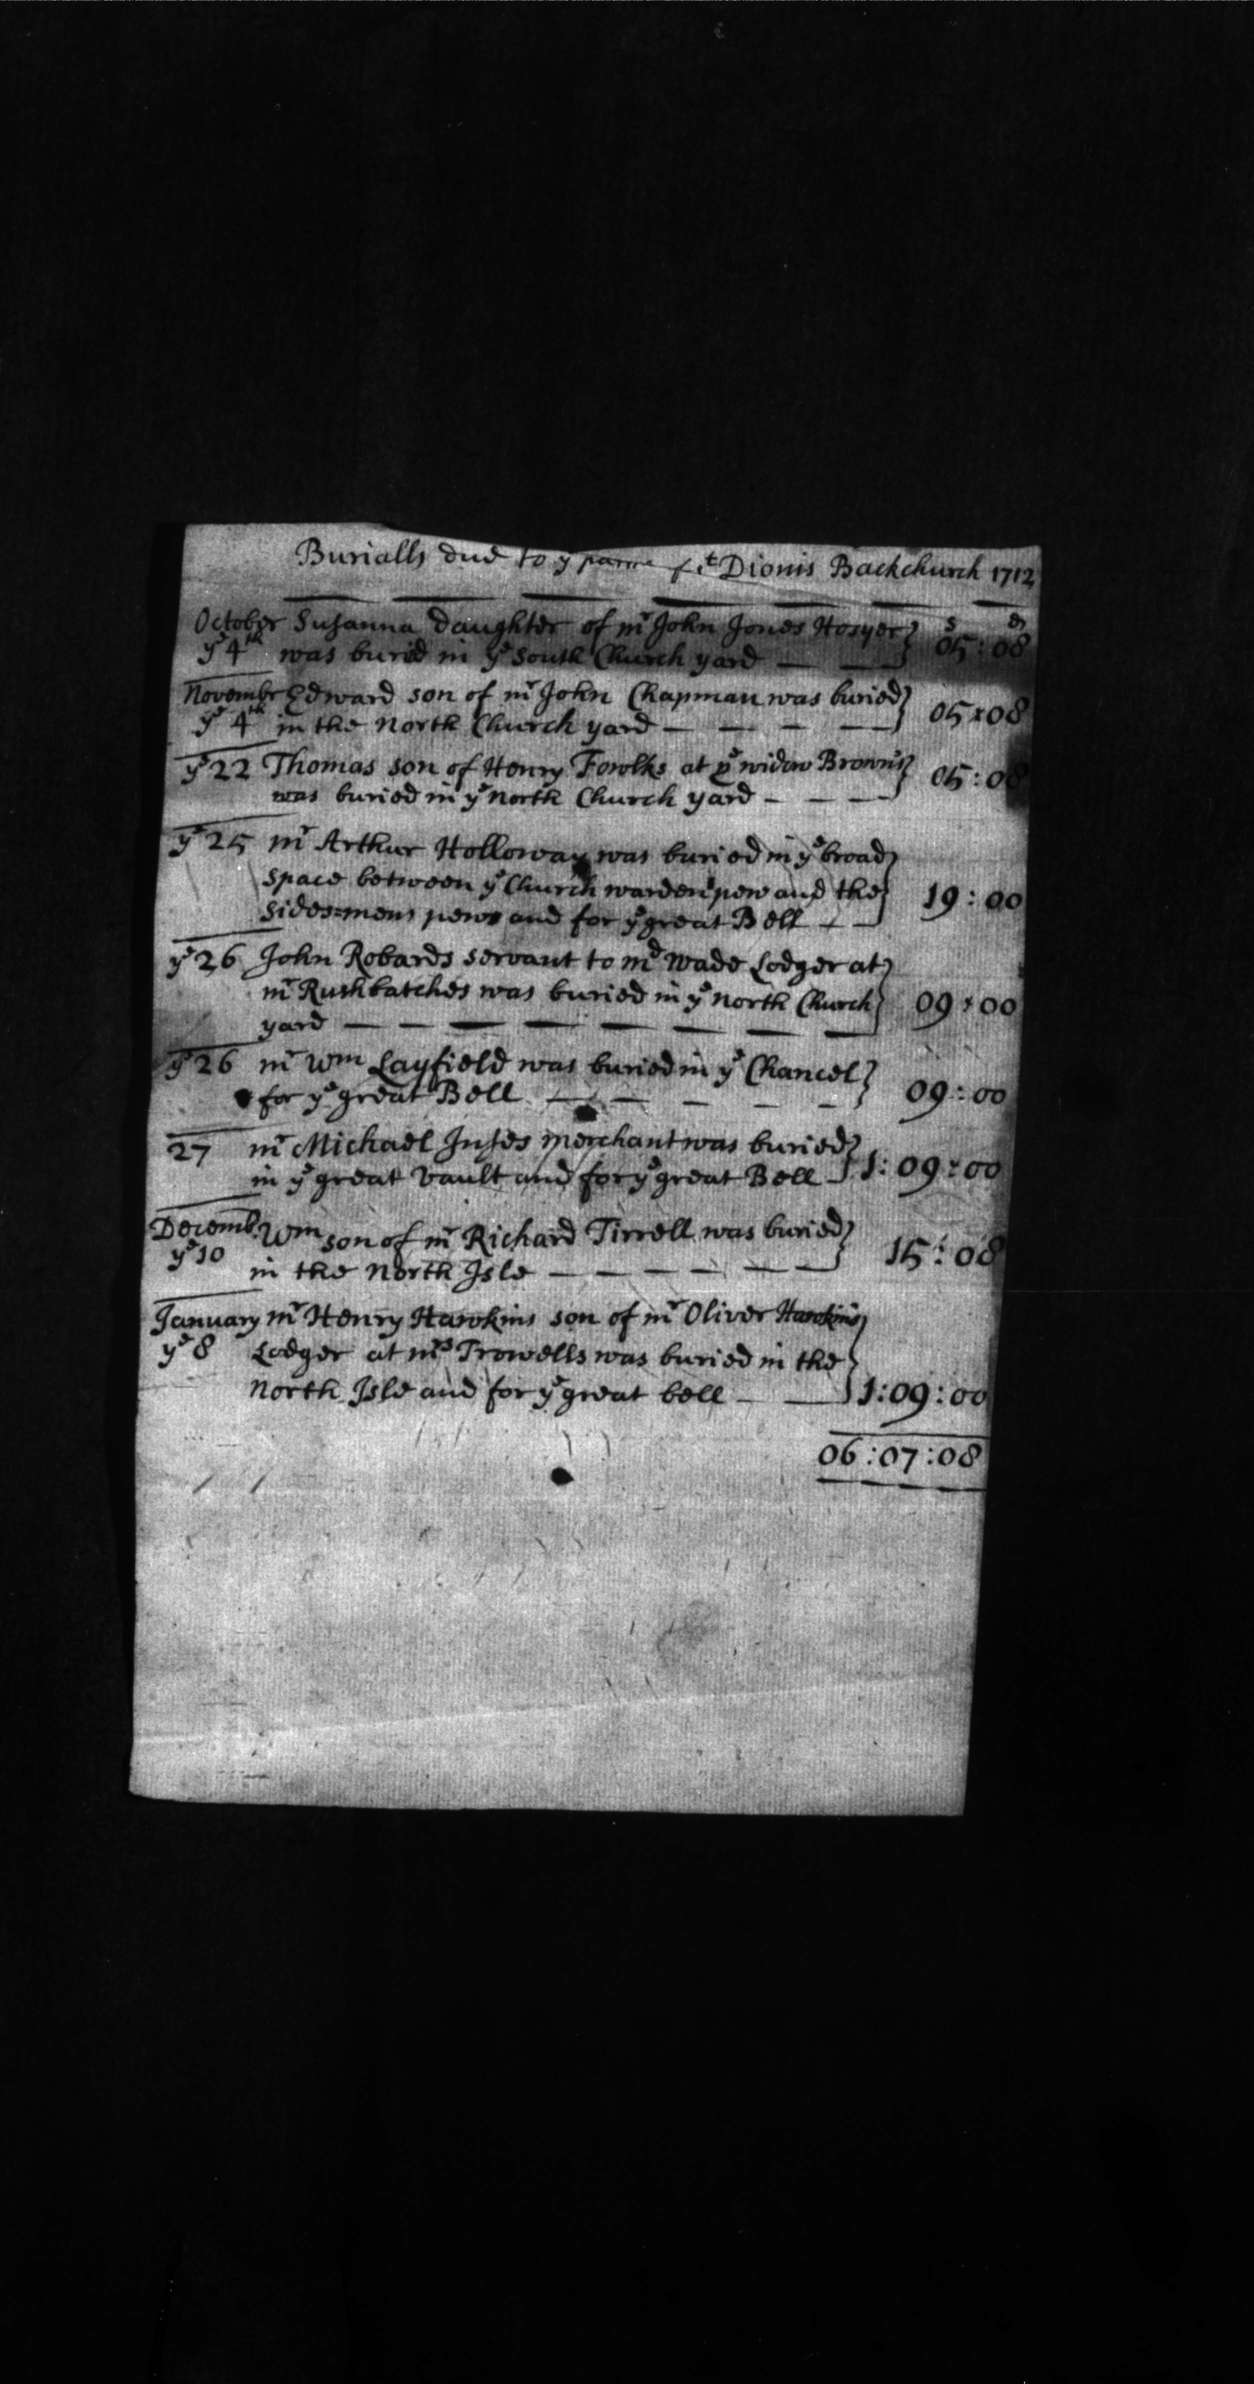 Burialls due to ye parric St Dionis Backchurch 1712
s d
October Susanna daughter of mr John Jones Hosyer
ye 4th was buried in ye South Church yard 05:08
Novembr Edward son of mr John Chapman was buried
ye 4th in the North Church yard 05:08
ye 22 Thomas son of Henry Fowlks at ye widow Browns
was buried in ye North Church yard 05:08
ye 25 mr Arthur Holloway was buried in ye broad
space between ye Church wardens pew and the
sides=mens pews and for ye great Bell 19:00
ye 26 John Robards servant to md Wade Lodger at
mr Rushbatches was buried in ye North Church
yard 09:00
ye 26 mr Wm Layfield was buried in ye Chancel
for ye great Bell 09:00
27 mr Michael merchant was buried
in ye great vault and for ye great Bell 1:09:00
Decemb Wm son of mr Richard Tirrell was buried
ye 10 in the North Isle 15:08
January mr Henry Hawkins son of mr Oliver Hawkins
ye 8 Lodger at mrs Trowells was buried in the
North Isle and for ye great bell 1:09:00
06:07:08